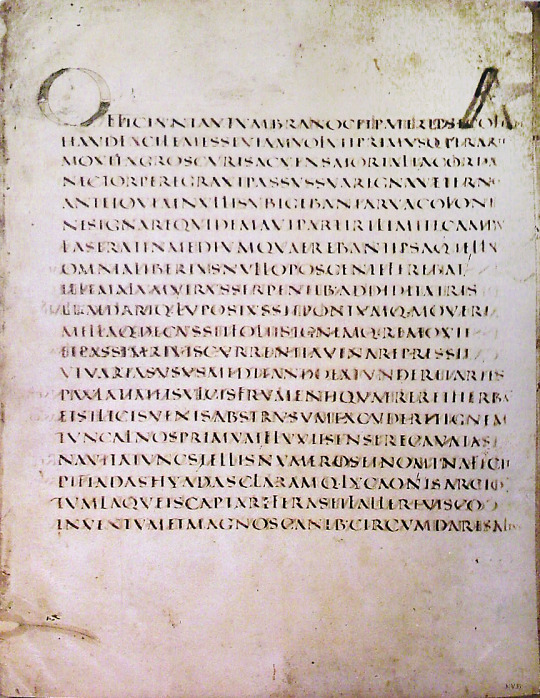 OFFICIUNTAUTUMBRANOCETPATERIPSECOL
HAUDFACILEMESSEVIAMVOLUITPRIMUSQ·PERAR
MOVITAGROSCURISACUENSMORTALIACORDA
NECTORPEREGRAVIPASSUSSUAREGNAVETERNO
ANTEIOVEMNULLISUBIGEBANTARVACOLONI
NESIGNAREQUIDEMAUTPARTIRILIMITECAMPU
FASERATINMEDIUMQUAEREBANTIPSAQ·TELLUS
OMNIALIBERIUSNULLOPOSCENTEFEREBAT
ILLEMALUMVIRUSSERPENTIBADDIDITATRIS
PRAEDARIQ·LUPOSIUSSITPONTUMQ·MOVERI
MELLAQ·DECUSSITFOLIISIGNEMQ·REMOVIT
ETPASSIMRIVISCURRENTIAVINAREPRESSIT
UTVARIASUSUSMEDITANDOEXTUNDERETARTIS
PAULATIMETSULCISFRUMENTIQUAERERETHERBA
ETSILICISVENISABSTRUSUMEXCUDERETIGNEM
TUNCALNOSPRIMUMFLUVIISENSERECAVATAS
NAVITATUNCSTELLISNUMEROSETNOMINAFECIT
PLEIADASHYADASCLARAMQ·LYCAONISARCTO
TUMLAQUEISCAPTAREFERASETFALLEREVISCO
INVENTUMETMAGNOSCANIB·CIRCUMDARESAL